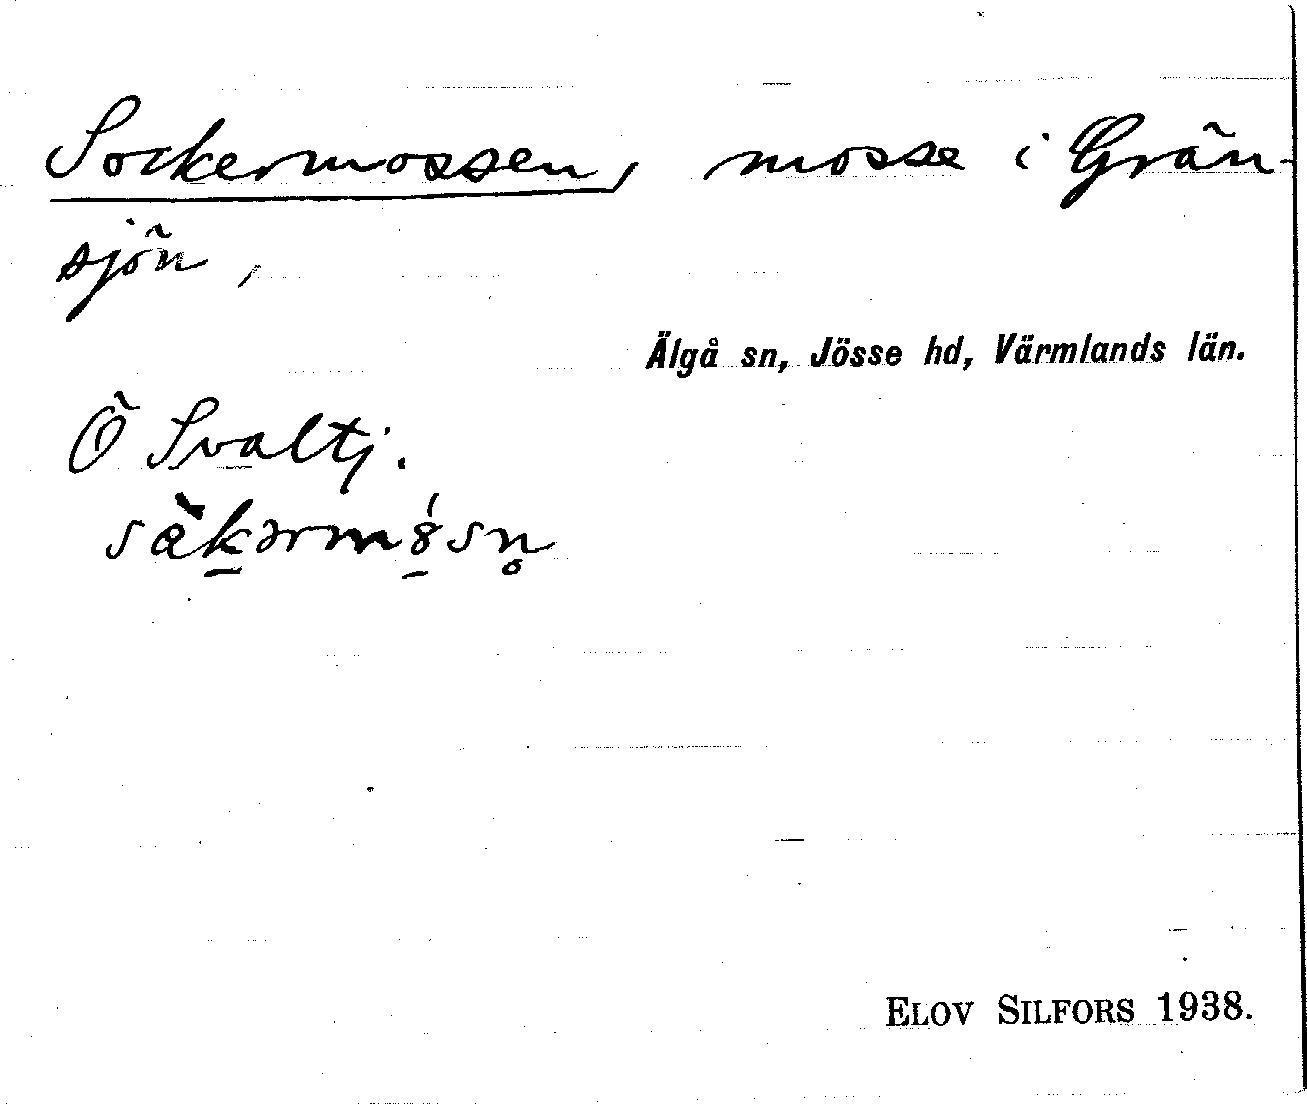 Sockermossen, mosse i Grän-
sjön,
Älgå sn, Jösse hd, Värmlands län.
Ö Svaltj.
ELOV SILFORS 1938.